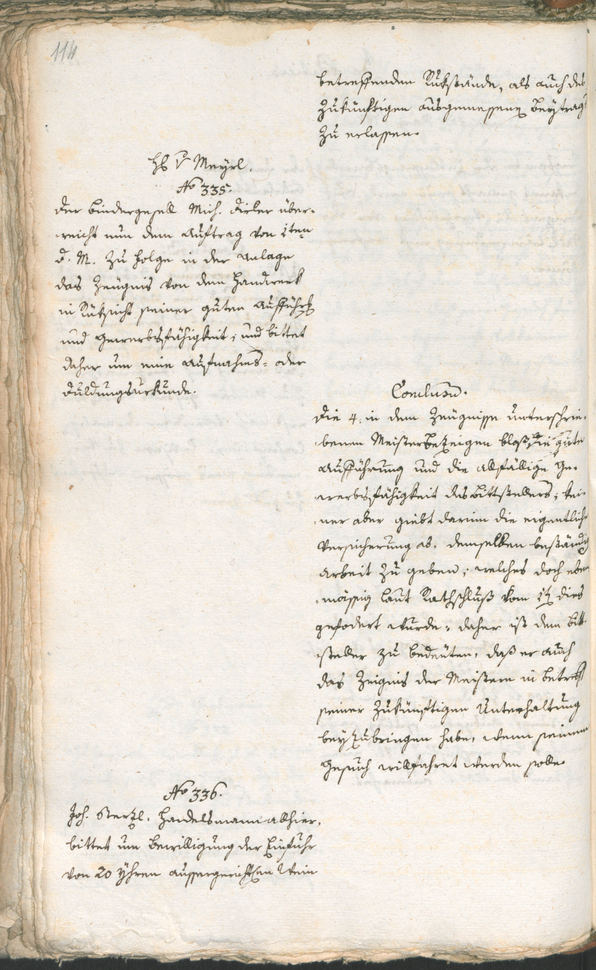 114
betreffenden Rükstände, als auch des
zukünftigen ausgemessenen Beytrags
zu erlassen.
H: v Meyrl.
No 335.
Der Bindergesell Mich. über-
reicht nun dem Auftrag von 1ten
d. M. zu folge in der Anlage
das Zeugnis von dem Handwerk
in Rüksicht seiner guten Aufführ
und gewerbsfähigkeit; und bittet
daher um eine Aufnahms- oder
Duldungsurkunde.
Conclusum.
Die 4. in dem Zeugnisse unterschrie-
benen Meister bezeigen bloß die gute
Aufführung und die allfällige Ge-
werbsfähigkeit des Bittstellers; kei-
ner aber giebt darinn die eigentliche
Versicherung ab, demselben beständig
Arbeit zu geben; welches doch eben
mässig laut Rathschluß vom dies
gefodert wurde; daher ist dem Bitt-
steller zu bedeuten, daß er auch
das Zeignis der Meistern in betreff
seiner zukünftigen Unterhaltung
beyzubringen habe, wenn seinem
Gesuch willfahret werden solle.
No 336.
Joh. Handelsmann allhier,
bittet um Bewilligung der Einfuhr
von 20 Yhren Wein